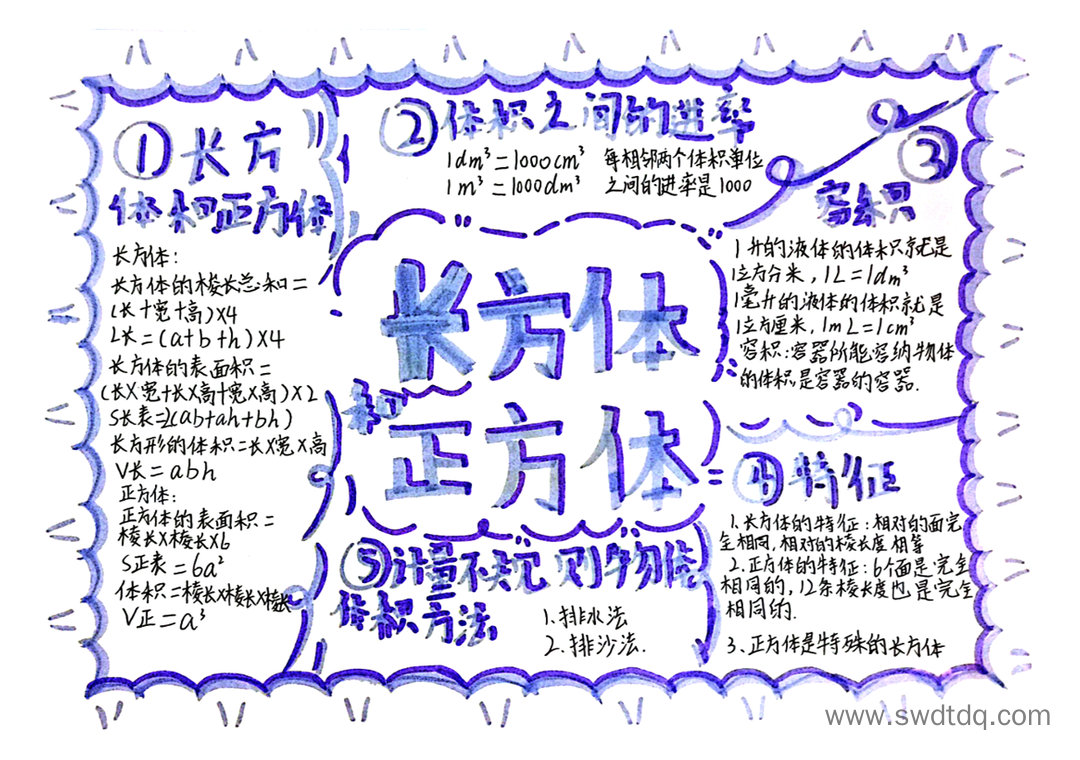 ①长方
体和正方体
长方体:
长方体的棱长总和=
(长+宽+高)×4
L长=(a+b+h)×4
长方体的表面积=
(长×宽+长×高+宽×高)×2
S长表=2(ab+ah+bh)
长方形的体积=长×宽×高
V长=abh
正方体:
正方体的表面积=
棱长×棱长×6
S正表=6a²
体积=棱长×棱长×棱长
V正=a³
②体积之间的进率
1dm³=1000cm³ 每相邻两个体积单位
1m³=1000dm³ 之间的进率是1000
③
容积
1升的液体的体积就是
1立方分米,1L=1dm³
1毫升的液体的体积就是
1立方厘米,1mL=1cm³
容积:容器所能容纳物体
的体积是容器的容器.
长方体
和
正方体
④特征
1.长方体的特征:相对的面完
全相同,相对的棱长度相等
2.正方体的特征:6个面是完全
相同的,12条棱长度也是完全
相同的.
3、正方体是特殊的长方体
⑤计量不规则物体
体积方法
1.排水法
2、排沙法.
www.swdtdq.com